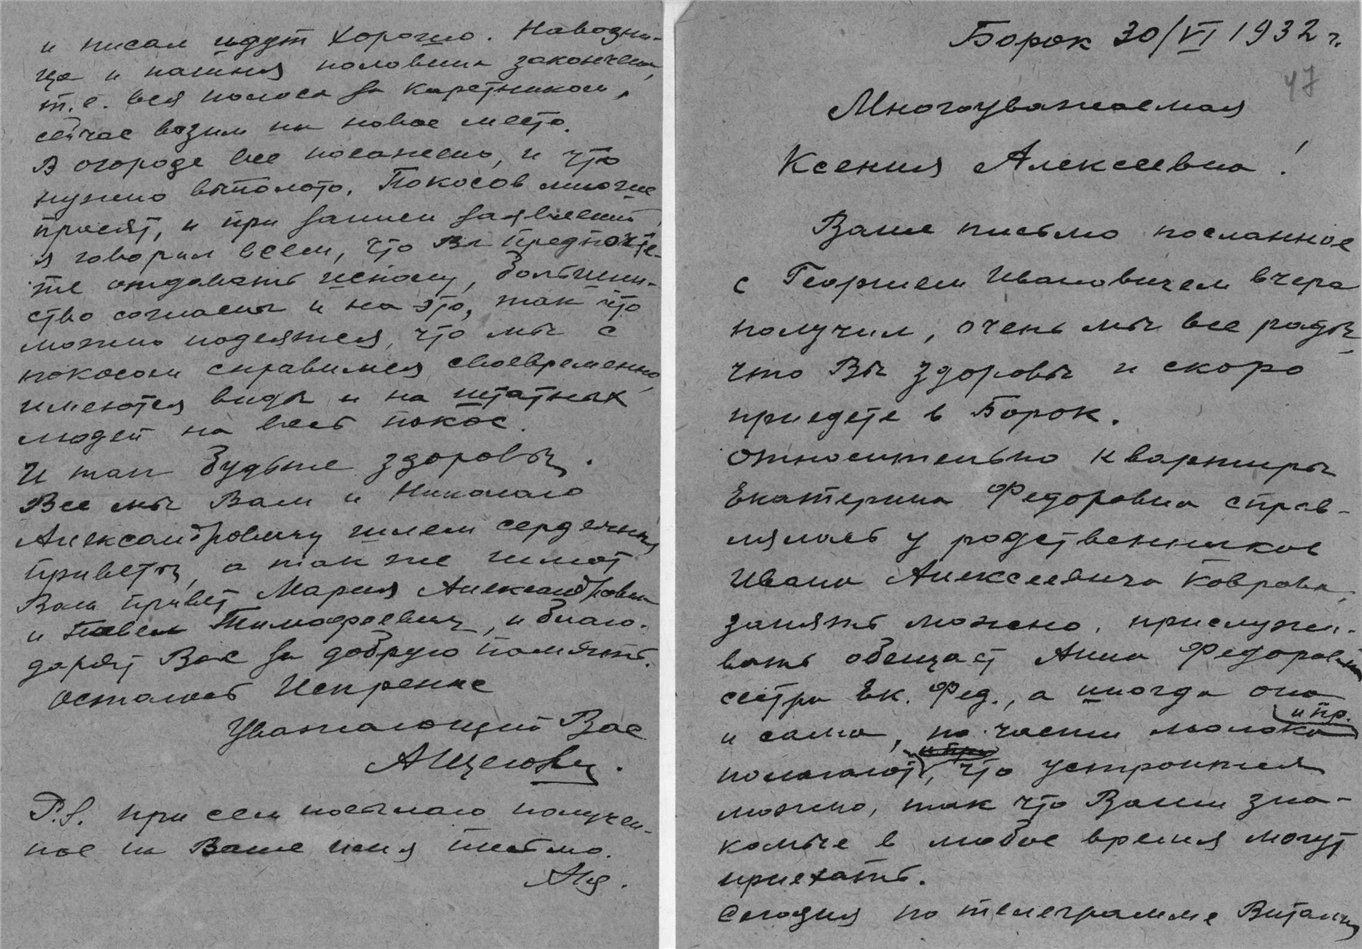 Борок 30/VI 1932 г.
47
Многоуважаемая
Ксения Алексеевна!
Ваше письмо посланное
с Георгием Ивановичем вчера
получил, очень мы все рады,
что Вы здоровы и скоро
приедете в Борок.
Относительно квартиры
Екатерина Федоровна справ-
лялась у родственников
Ивана Алексеевича Коврова,
занять можно, прислужи-
вать обещает Анна Федоровна
сестра Ек. Фед., а иногда она
и сама, по части молока и пр.
полагают, что устроится
можно, так что Ваши зна-
комые в любое время могут
приехать.
Сегодня по телеграмме
и писал идут хорошо. Навозни-
ца и пашня половина закончена,
т.е. вся полоса за каретником,
сейчас возим на новое место.
В огороде все посажено, и что
нужно выполото. Покосов многие
просят, и при записи заявлений,
я говорил всем, что Вы предпочте-
те отдавать исполу, большин-
ство согласны и на это, так что
можно надеятся, что мы с
покосом справимся своевременно,
имеются виды и на штатных
людей на весь покос.
И так будьте здоровы.
Все мы Вам и Николаю
Александровичу шлем сердечный
привет, а так же шлют
Вам привет Мария Александровна
и Павел Тимофеевич, и благо-
дарят Вас за добрую память.
Остаюсь Искренне
Уважающий Вас
P.S. при сем посылаю получен-
ное на Ваше имя письмо.